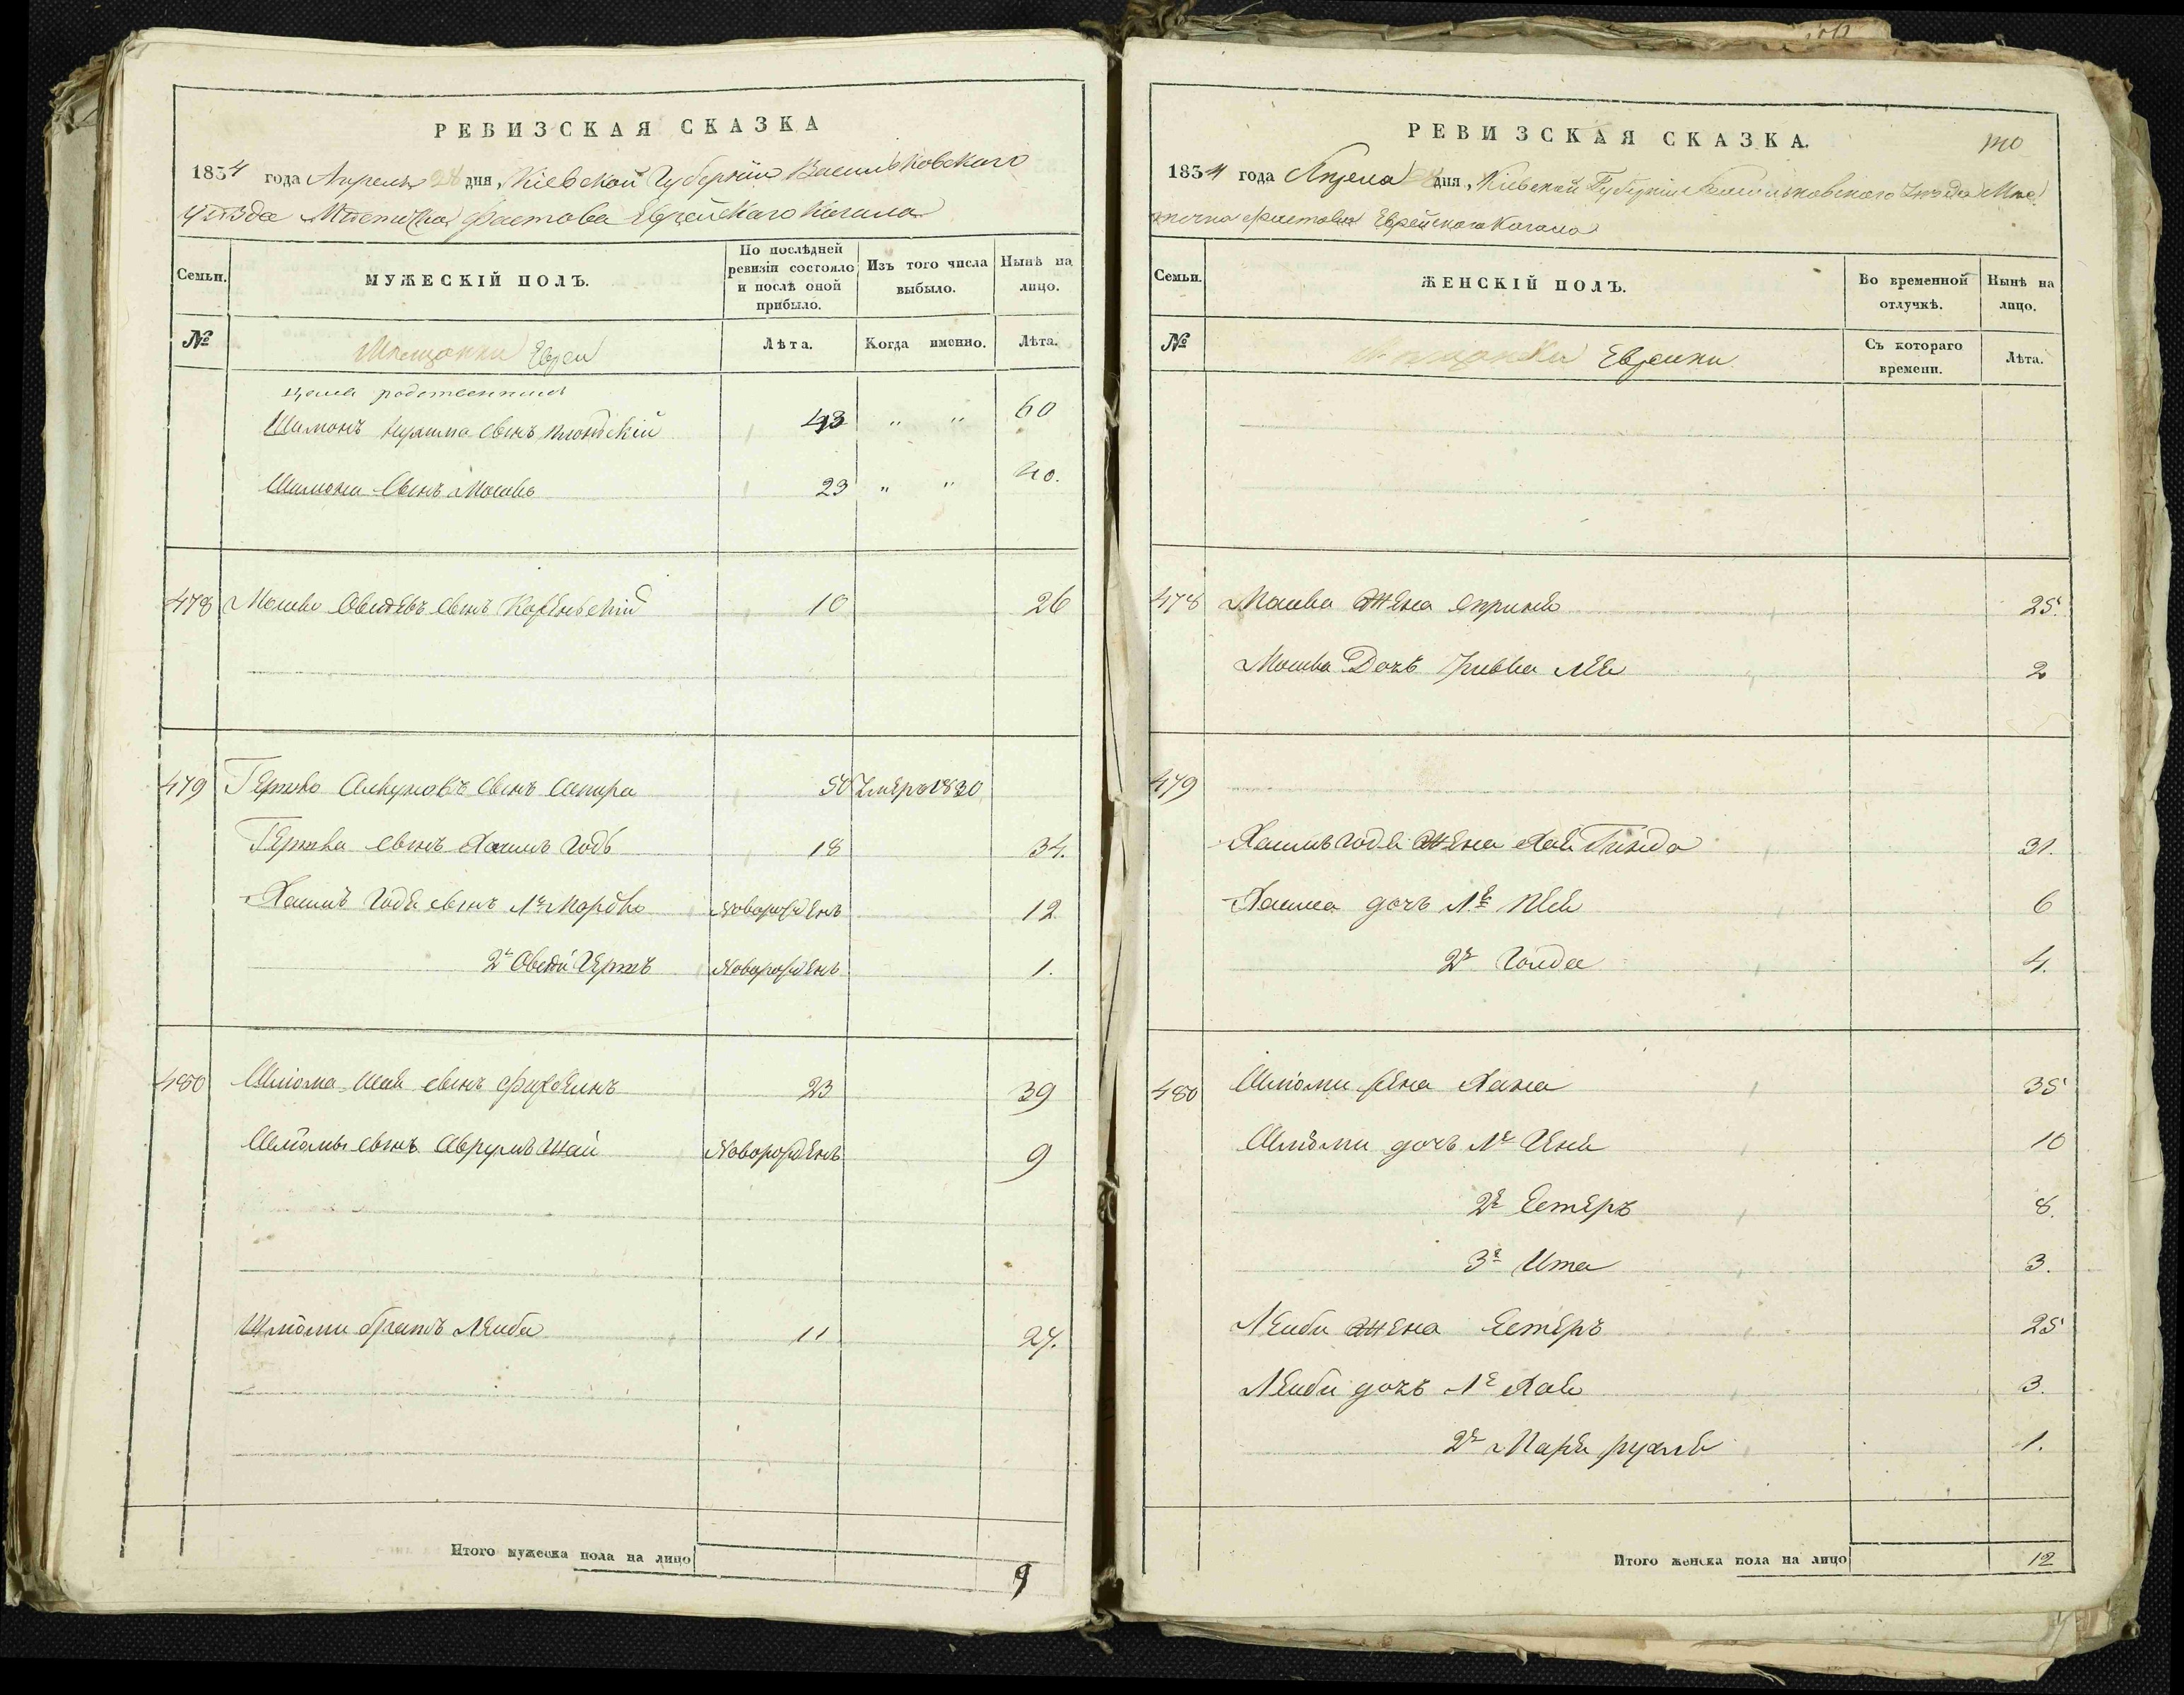 РЕВИЗСКАЯ СКАЗКА
1834 года Апреля 28 дня, Кіевской Губерніи Васильковскаго
уѣзда Мѣстечка Фастова Еврейскаго Кагала
Семьи.
МУЖЕСКІЙ ПОЛЪ.
По послѣдней ревизіи состояло и послѣ оной прибыло.
Изъ того числа выбыло.
Нынѣ на лицо.
№
Мѣщанки Евреи
Лѣта.
Когда именно.
Лѣта.
родственникъ
Шимонъ сынъ 43 " " 60
Шимона сынъ Мошко 23 " " 40.
478 Мошко Овшіевъ сынъ 10 26
479 Гершко сынъ Сапира 50 Умеръ 1830
Гершка сынъ Хаимъ Годъ 18 34.
Хаимъ Годя сынъ 1й Мордко Новорожденъ 12
2й Овший Гершъ Новорожденъ 1.
480 Шліома Шая сынъ 23 39
Шліомы сынъ Аврумъ Шая Новорожденъ 9
Шліоми братъ Лейба 11 27.
Итого мужеска пола на лицо
9
РЕВИЗСКАЯ СКАЗКА.
140
1834 года Апреля 28 дня, Кіевской Губерніи Васильковскаго уѣзда Мѣс
течка Фастова Еврейскаго Кагала
Семьи.
ЖЕНСКІЙ ПОЛЪ.
Во временной отлучкѣ.
Нынѣ на лицо.
№
Мѣщанки Еврейки
Съ котораго времени.
Лѣта.
478 Мошка Жена 25.
Мошка Дочь Ривка Лея 2
479
Хаимъ Годя Жена Хая Гинда 31.
Хаима дочь 1я 6
2я Голда 4.
480 Шліоми жена Хана 35
Шліоми дочь 1я Геня 10
2я Естеръ 8.
3я Ита 3.
Лейби Жена Естеръ 25
Лейби дочь 1я Хая 3.
2я Маря рухля 1.
Итого женска пола на лицо
12